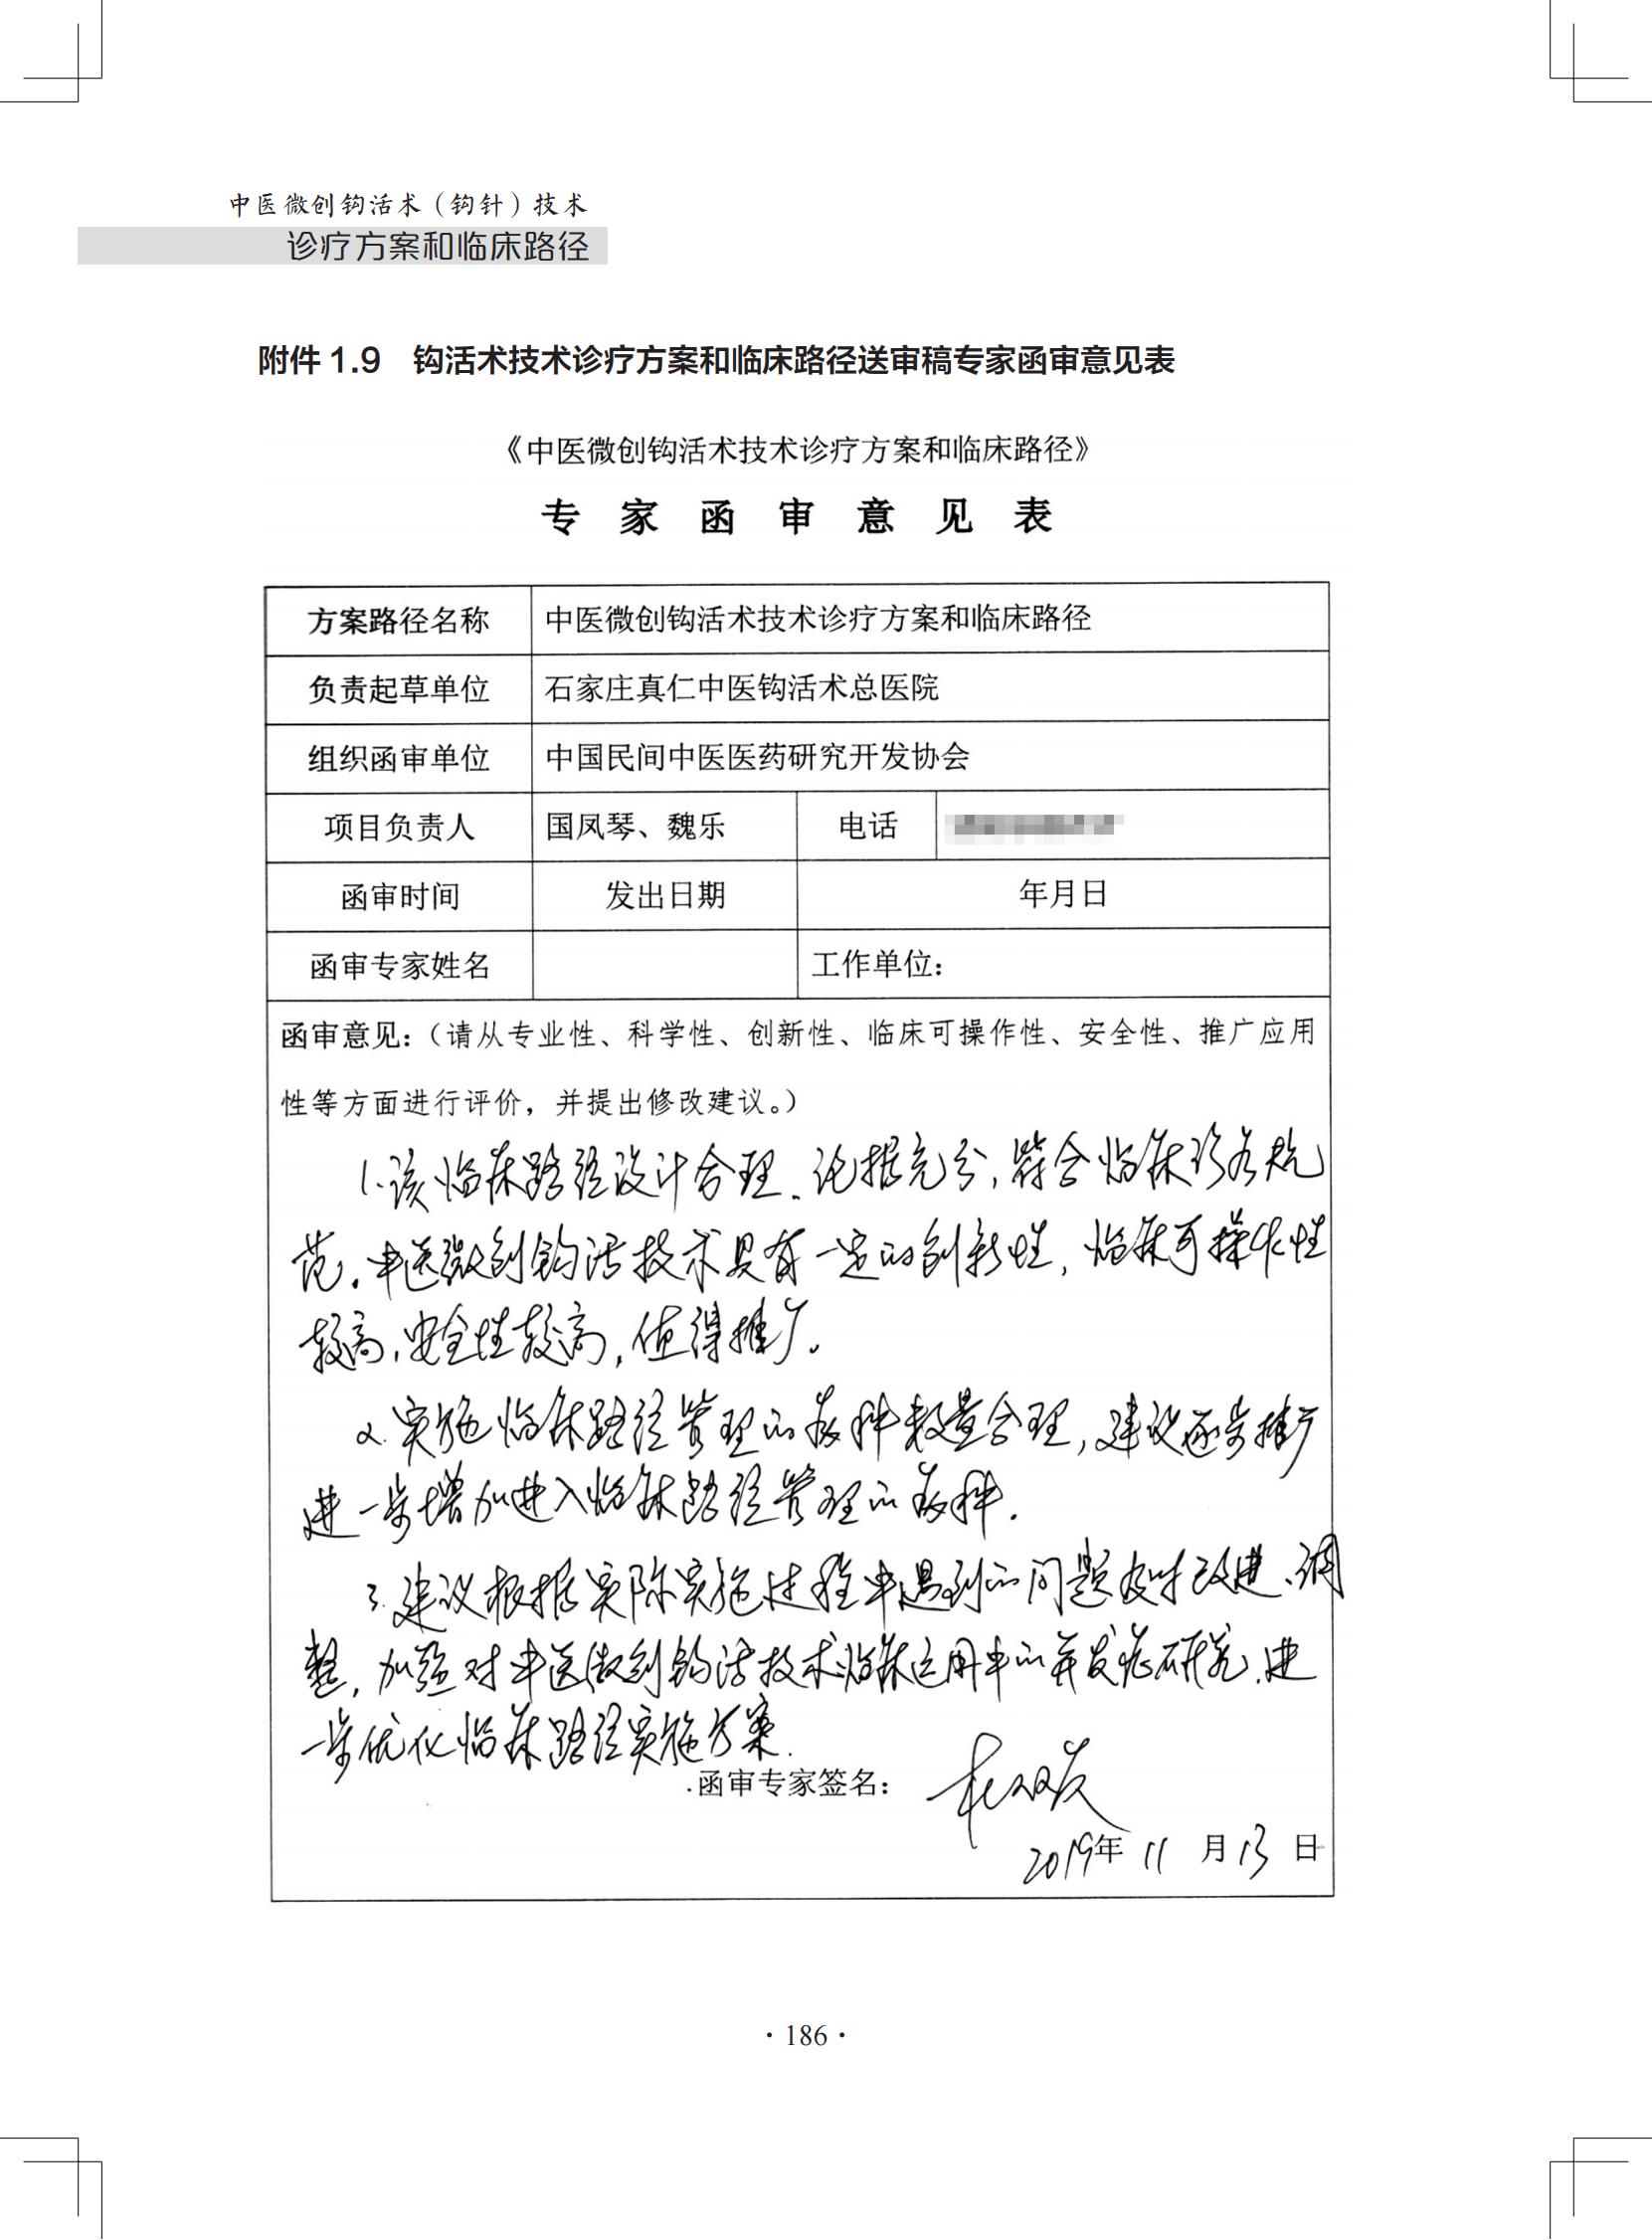 中医微创钩活术（钩针）技术
诊疗方案和临床路径
附件 1.9 钩活术技术诊疗方案和临床路径送审稿专家函审意见表
《中医微创钩活术技术诊疗方案和临床路径》
专 家 函 审 意 见 表
方案路径名称 中医微创钩活术技术诊疗方案和临床路径
负责起草单位 石家庄真仁中医钩活术总医院
组织函审单位 中国民间中医医药研究开发协会
项目负责人 国凤琴、魏乐 电话
函审时间 发出日期 年月日
函审专家姓名 工作单位：
函审意见：（请从专业性、科学性、创新性、临床可操作性、安全性、推广应用
性等方面进行评价，并提出修改建议。）
1.该临床路径设计合理、论据充分，符合临床诊疗规
范。中医微创钩活技术具有一定的创新性，临床可操作性
较高，安全性较高，值得推广。
2.实施临床路径管理的病种数量合理，建议逐步推广
进一步增加进入临床路径管理的病种.
3.建议根据实际实施过程中遇到的问题及时改进、调
整，加强对中医微创钩活技术临床运用中的并发症研究，进
一步优化临床路径实施方案.
函审专家签名：
2019年 11 月 13 日
·186·